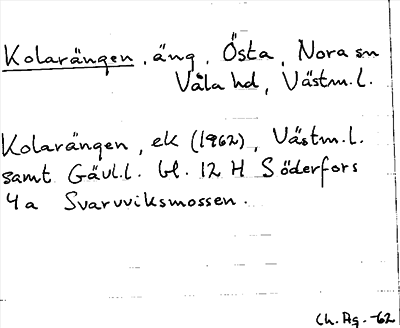 Kolarängen, äng, Östa, Nora sn
Våla hd, Västm.l.
Kolarängen, ek (1962), Västm.l.
samt Gävl.l. bl. 12 H Söderfors
4a Svarvviksmossen.
Ch. Ag. -62